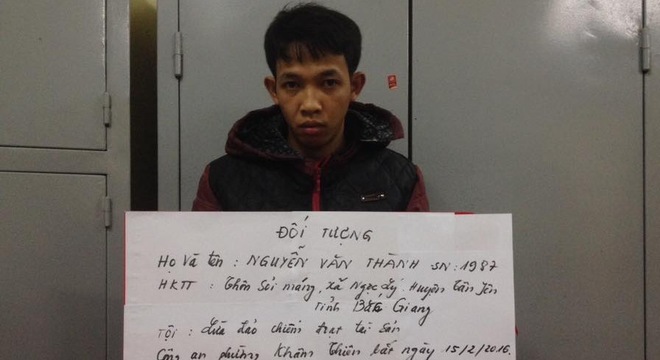 ĐỐI TƯỢNG
Họ và tên : NGUYỄN VĂN THÀNH SN : 1987
HKTT : Thôn Sỏi máng, xã Ngọc Lý, Huyện Tân Yên
Tỉnh Bắc Giang
Tội : Lừa đảo chiếm đoạt tài sản
Công an phường Khâm Thiên bắt ngày 15/2/2016.